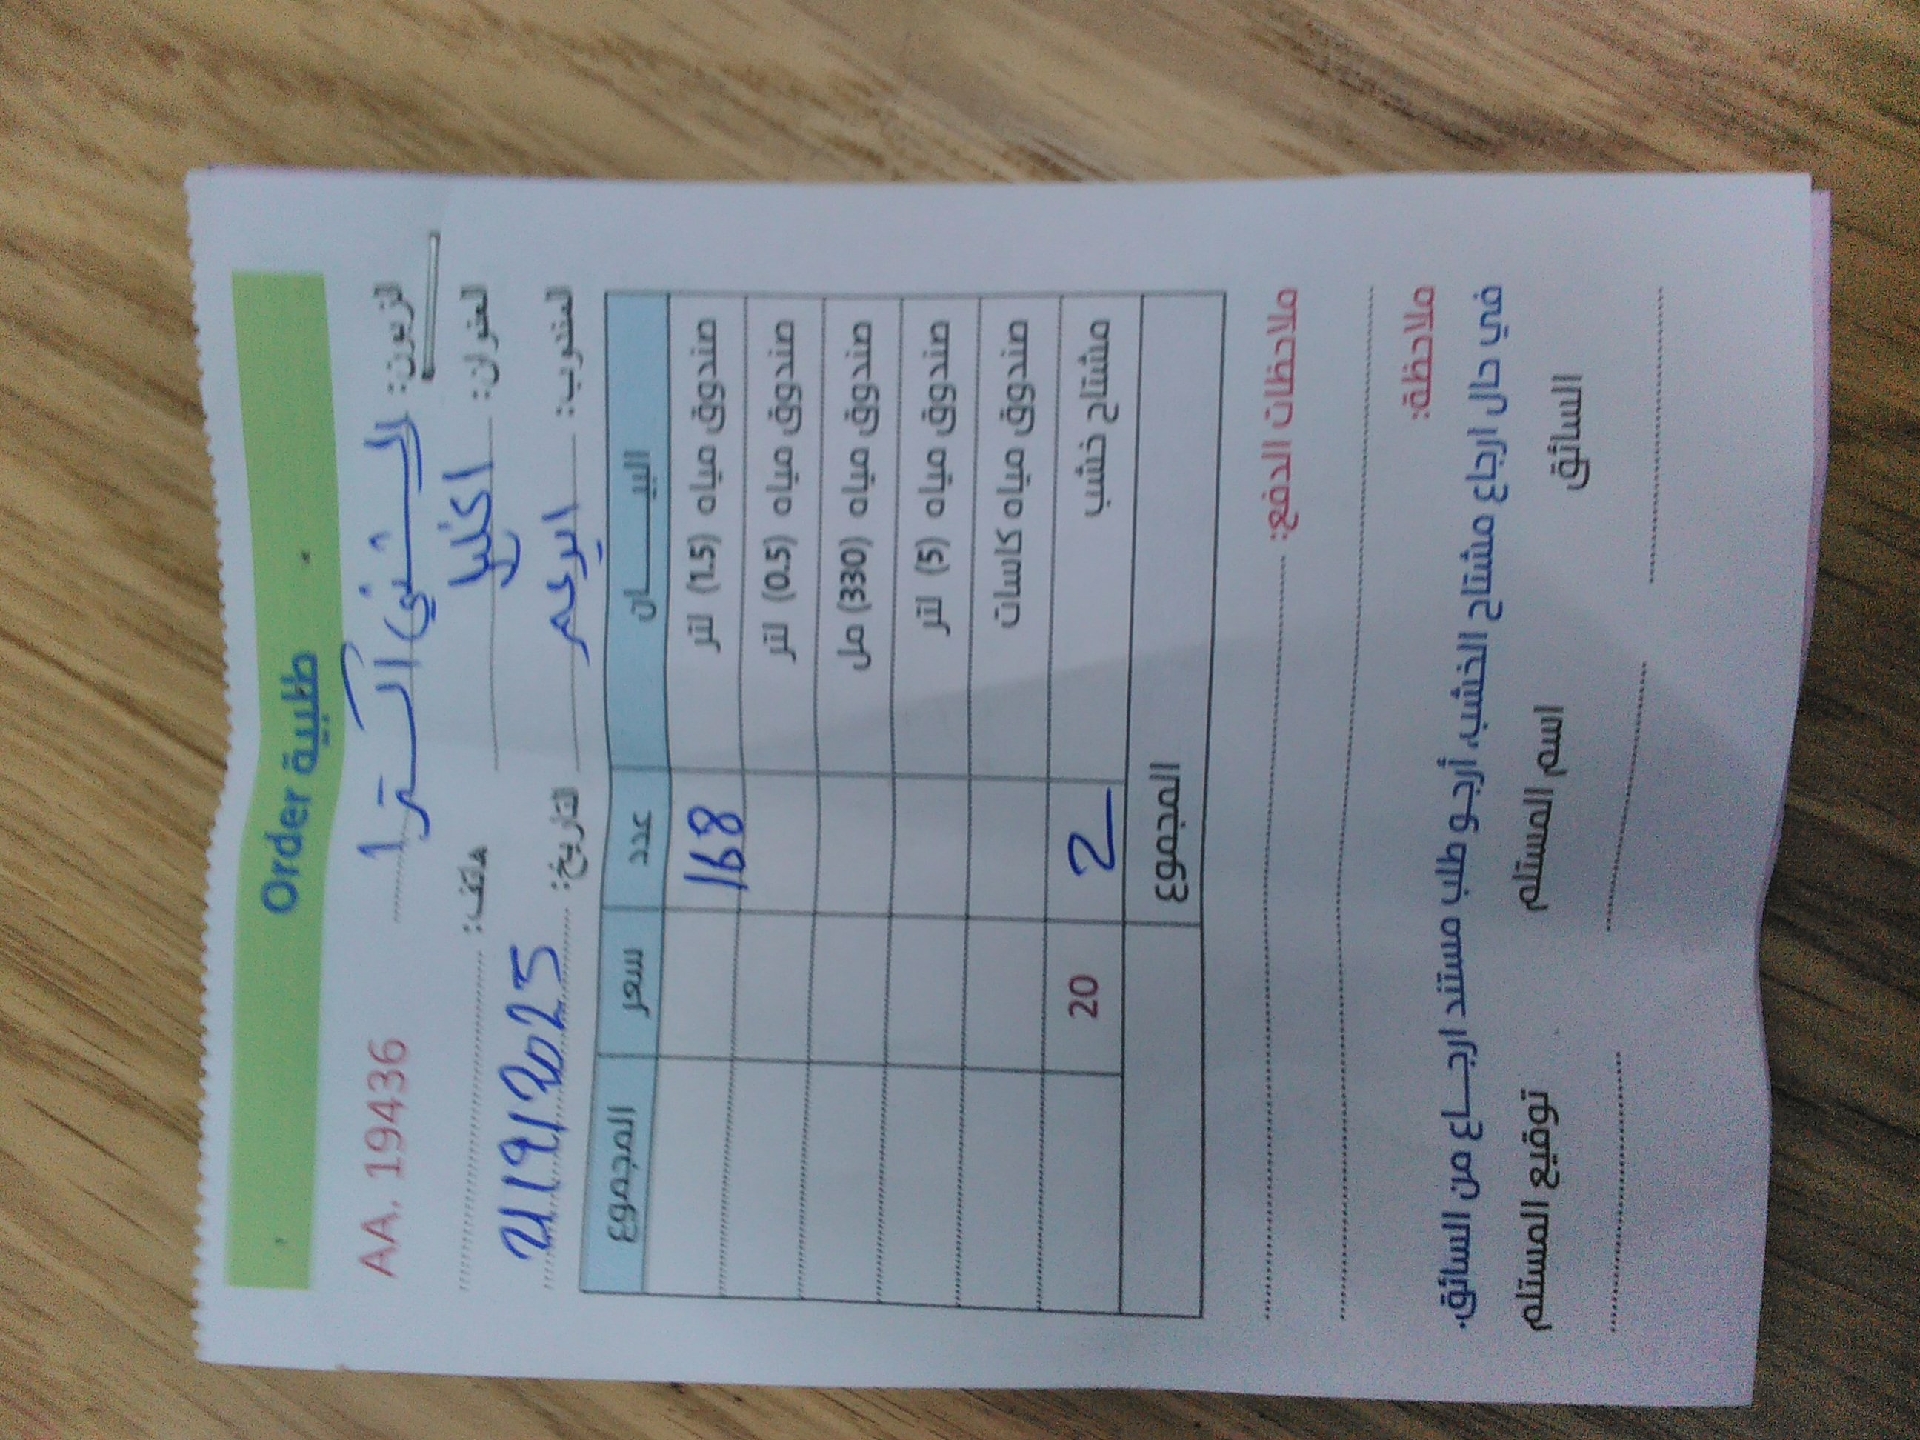 Order طلبية
AA. 19436
الزبون: الشني اكسترا
العنوان: اكليل هاتف:
المندوب: ابراهيم التاريخ: 21/9/2025
البيـــــان عدد سعر المجموع
صندوق مياه (1.5) لتر 168
صندوق مياه (0.5) لتر
صندوق مياه (330) مل
صندوق مياه (5) لتر
صندوق مياه كاسات
مشتاح خشب 2 20
المجموع
ملاحظات الدفع:
ملاحظة:
في حال ارجاع مشتاح الخشب، أرجو طلب مستند ارجـــاع من السائق.
السائق اسم المستلم توقيع المستلم